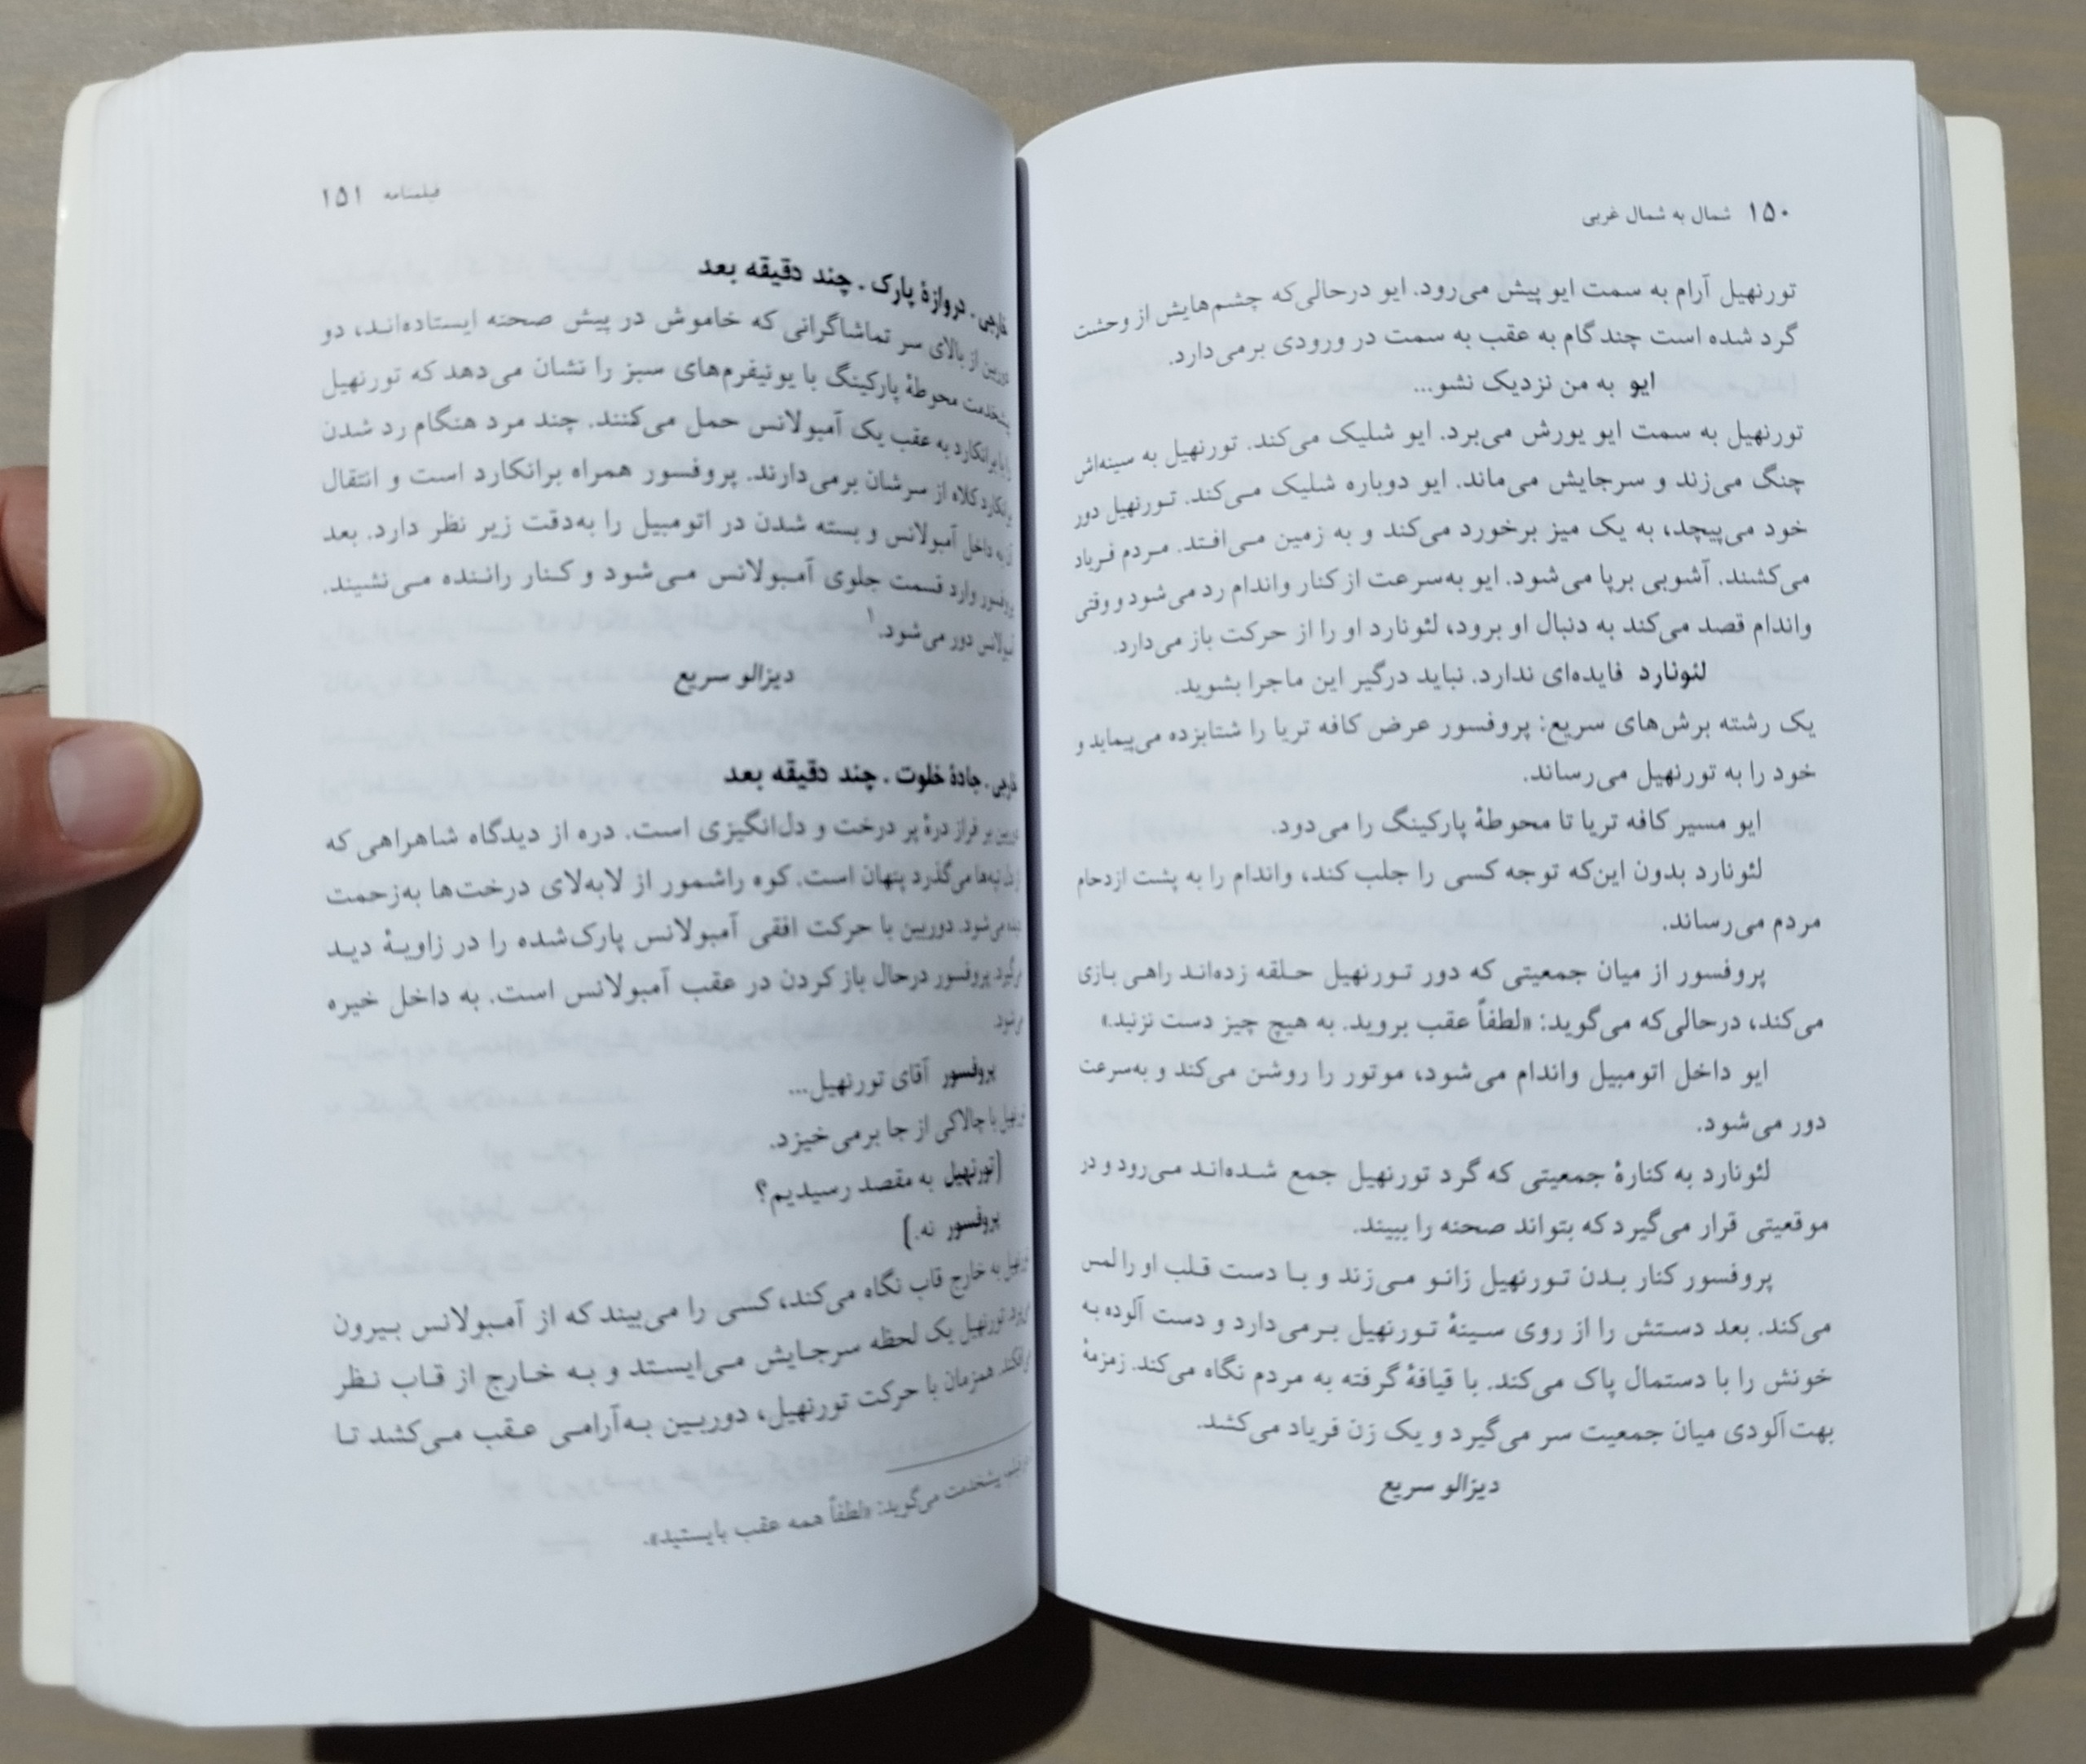 ۱۵۰ شمال به شمال غربی
تورنهیل آرام به سمت ایو پیش می‌رود. ایو درحالی‌که چشم‌هایش از وحشت
گرد شده است چند گام به عقب به سمت در ورودی برمی‌دارد.
ایو به من نزدیک نشو...
تورنهیل به سمت ایو یورش می‌برد. ایو شلیک می‌کند. تورنهیل به سینه‌اش
چنگ می‌زند و سرجایش می‌ماند. ایو دوباره شلیک می‌کند. تورنهیل دور
خود می‌پیچد، به یک میز برخورد می‌کند و به زمین می‌افتد. مردم فریاد
می‌کشند. آشوبی برپا می‌شود. ایو به‌سرعت از کنار واندام رد می‌شود و وقتی
واندام قصد می‌کند به دنبال او برود، لئونارد او را از حرکت باز می‌دارد.
لئونارد فایده‌ای ندارد. نباید درگیر این ماجرا بشوید.
یک رشته برش‌های سریع: پروفسور عرض کافه تریا را شتابزده می‌پیماید و
خود را به تورنهیل می‌رساند.
ایو مسیر کافه تریا تا محوطهٔ پارکینگ را می‌دود.
لئونارد بدون این‌که توجه کسی را جلب کند، واندام را به پشت ازدحام
مردم می‌رساند.
پروفسور از میان جمعیتی که دور تورنهیل حلقه زده‌اند راهی بازی
می‌کند، درحالی‌که می‌گوید: «لطفاً عقب بروید. به هیچ چیز دست نزنید.»
ایو داخل اتومبیل واندام می‌شود، موتور را روشن می‌کند و به‌سرعت
دور می‌شود.
لئونارد به کنارهٔ جمعیتی که گرد تورنهیل جمع شده‌اند می‌رود و در
موقعیتی قرار می‌گیرد که بتواند صحنه را ببیند.
پروفسور کنار بدن تورنهیل زانو می‌زند و با دست قلب او را لمس
می‌کند. بعد دستش را از روی سینهٔ تورنهیل برمی‌دارد و دست آلوده به
خونش را با دستمال پاک می‌کند. با قیافهٔ گرفته به مردم نگاه می‌کند. زمزمهٔ
بهت‌آلودی میان جمعیت سر می‌گیرد و یک زن فریاد می‌کشد.
دیزالو سریع
فیلمنامه ۱۵۱
خارجی. دروازهٔ پارک. چند دقیقه بعد
دوربین از بالای سر تماشاگرانی که خاموش در پیش صحنه ایستاده‌اند، دو
پیشخدمت محوطهٔ پارکینگ با یونیفرم‌های سبز را نشان می‌دهد که تورنهیل
را با برانکارد به عقب یک آمبولانس حمل می‌کنند. چند مرد هنگام رد شدن
برانکارد کلاه از سرشان برمی‌دارند. پروفسور همراه برانکارد است و انتقال
آن به داخل آمبولانس و بسته شدن در اتومبیل را به‌دقت زیر نظر دارد. بعد
پروفسور وارد قسمت جلوی آمبولانس می‌شود و کنار راننده می‌نشیند.
آمبولانس دور می‌شود.۱
دیزالو سریع
خارجی. جادهٔ خلوت. چند دقیقه بعد
دوربین بر فراز درهٔ پر درخت و دل‌انگیزی است. دره از دیدگاه شاهراهی که
از دل تپه‌ها می‌گذرد پنهان است. کوه راشمور از لابه‌لای درخت‌ها به‌زحمت
دیده می‌شود. دوربین با حرکت افقی آمبولانس پارک‌شده را در زاویهٔ دید
می‌گیرد. پروفسور درحال باز کردن در عقب آمبولانس است. به داخل خیره
می‌شود.
پروفسور آقای تورنهیل...
تورنهیل با چالاکی از جا برمی‌خیزد.
[تورنهیل به مقصد رسیدیم؟
پروفسور نه.]
تورنهیل به خارج قاب نگاه می‌کند، کسی را می‌بیند که از آمبولانس بیرون
می‌رود. تورنهیل یک لحظه سرجایش می‌ایستد و به خارج از قاب نظر
می‌افکند. همزمان با حرکت تورنهیل، دوربین به‌آرامی عقب می‌کشد تا
پیشخدمت می‌گوید: «لطفاً همه عقب بایستید».